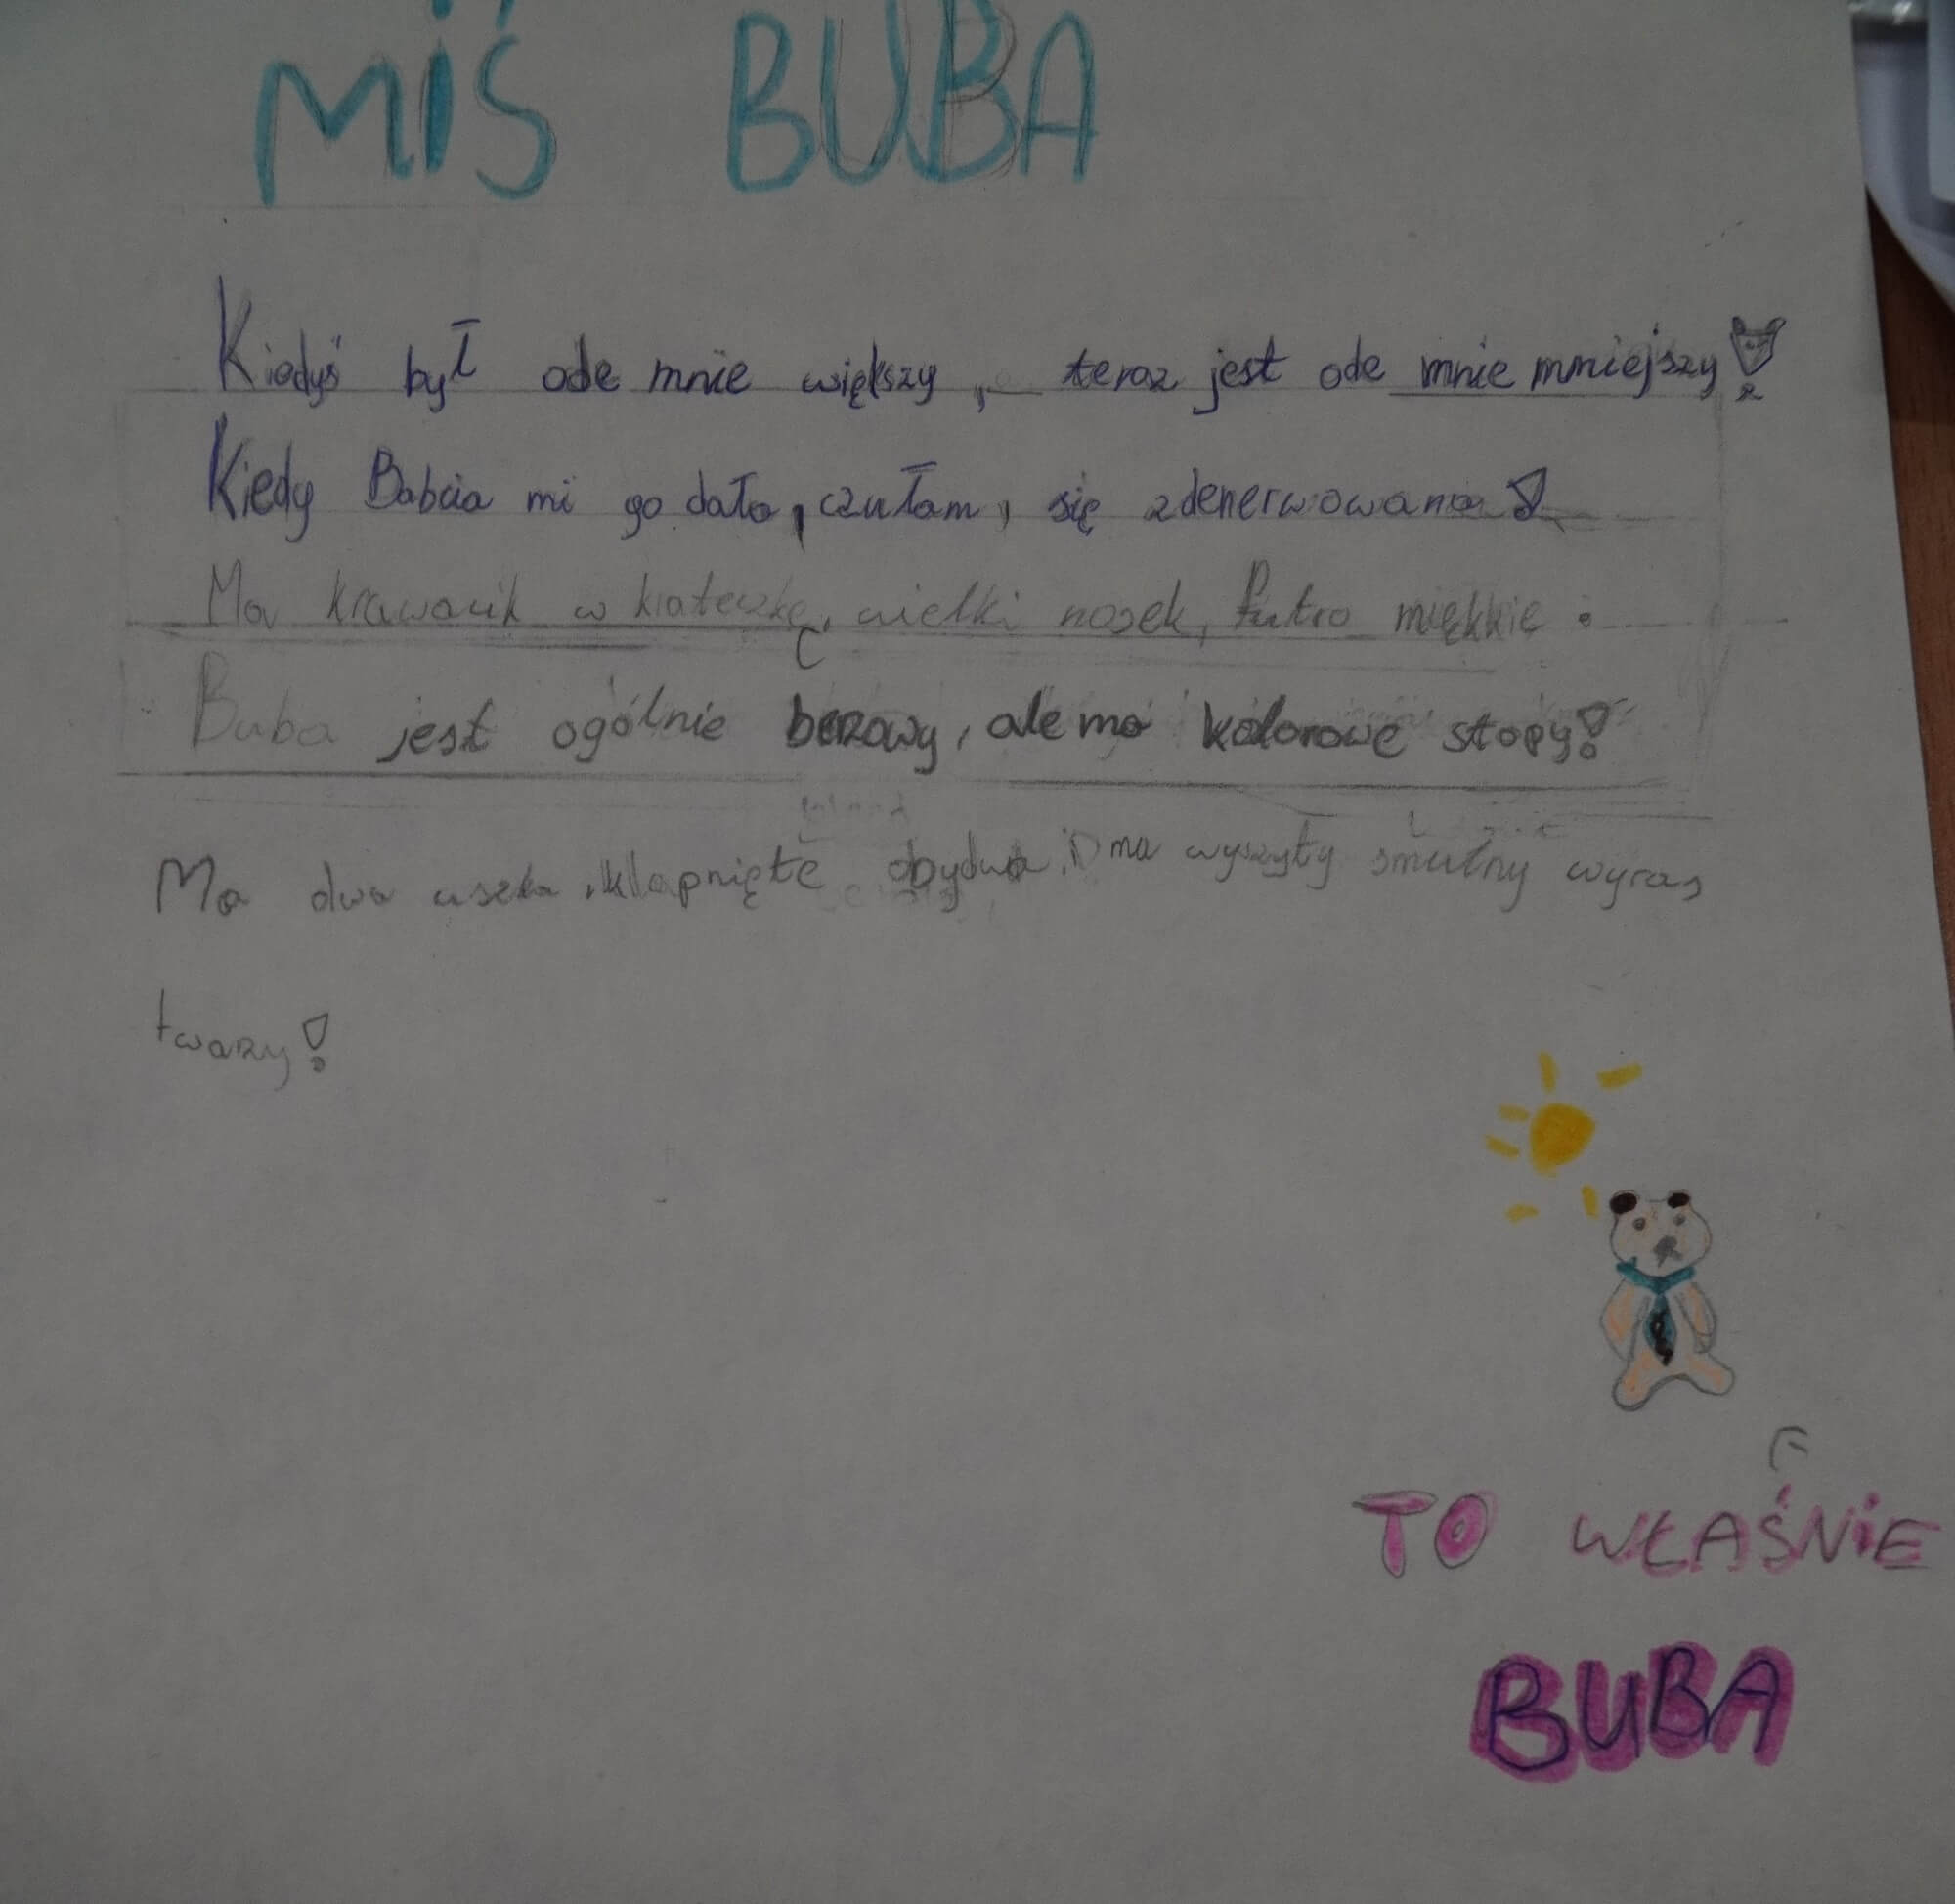 MiŚ BUBA
Kiedyś był ode mnie większy, teraz jest ode mnie mniejszy!
Kiedy Babcia mi go dała, czułam, się zdenerwowana!
Ma krawacik w krateczkę, wielki nosek, futro miękkie.
Buba jest ogólnie beżowy, ale ma kolorowe stopy!
Ma dwa uszka, klapnięte obydwa, i ma wyszyty smutny wyraz
twarzy!
TO WŁAŚNiE
BUBA